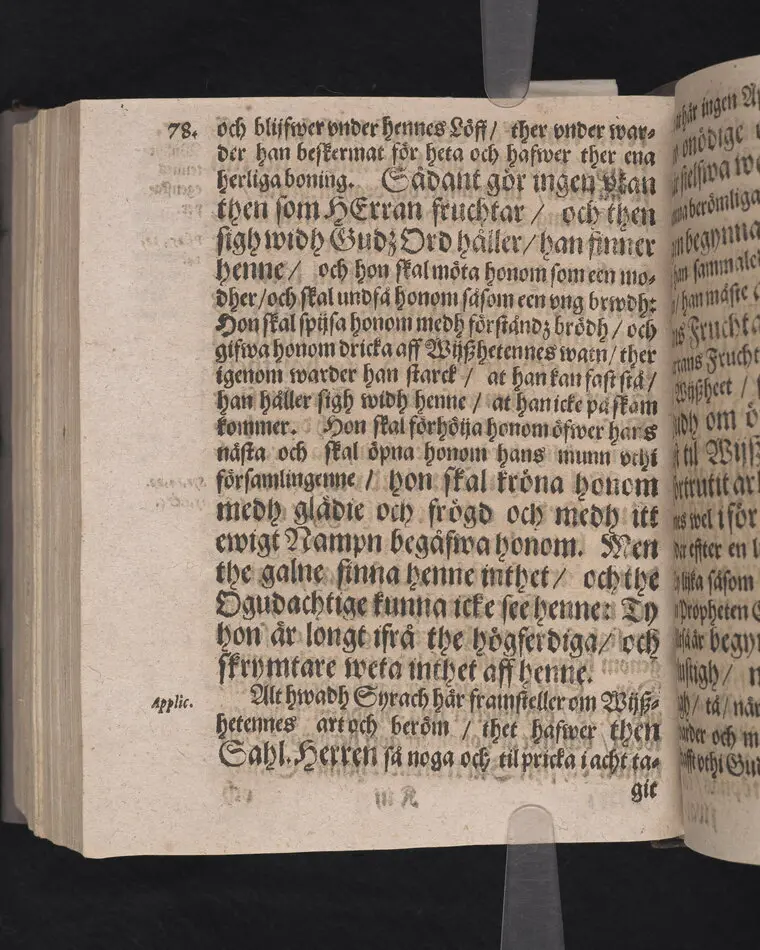 78.
och blijfwer vnder hennes Löff / ther vnder war-
der han beskermat för heta och hafwer ther ena
herliga boning. Sådant gör ingen vtan
then som HErran fruchtar / och then
sigh widh Gudz Ord håller / han finner
henne / och hon skal möta honom som een mo-
dher / och skal undfå honom såsom een vng brwdh:
Hon skal spijsa honom medh förståndz brödh / och
gifwa honom dricka aff Wijßhetennes watn / ther
igenom warder han starck / at han kan fast stå /
han håller sigh widh henne / at han icke på skam
kommer. Hon skal förhöija honom öfwer hans
nästa och skal öpna honom hans munn vthi
församlingenne / hon skal kröna honom
medh glädie och frögd och medh itt
ewigt Nampn begåfwa honom. Men
the galne finna henne inthet / och the
Ogudachtige kunna icke see henne: Ty
hon är longt ifrå the högferdiga / och
skrymtare weta inthet aff henne.
Applic.
Alt hwadh Syrach här framsteller om Wijß-
hetennes art och beröm / thet hafwer then
Sahl. Herren så noga och til pricka i acht ta-
git